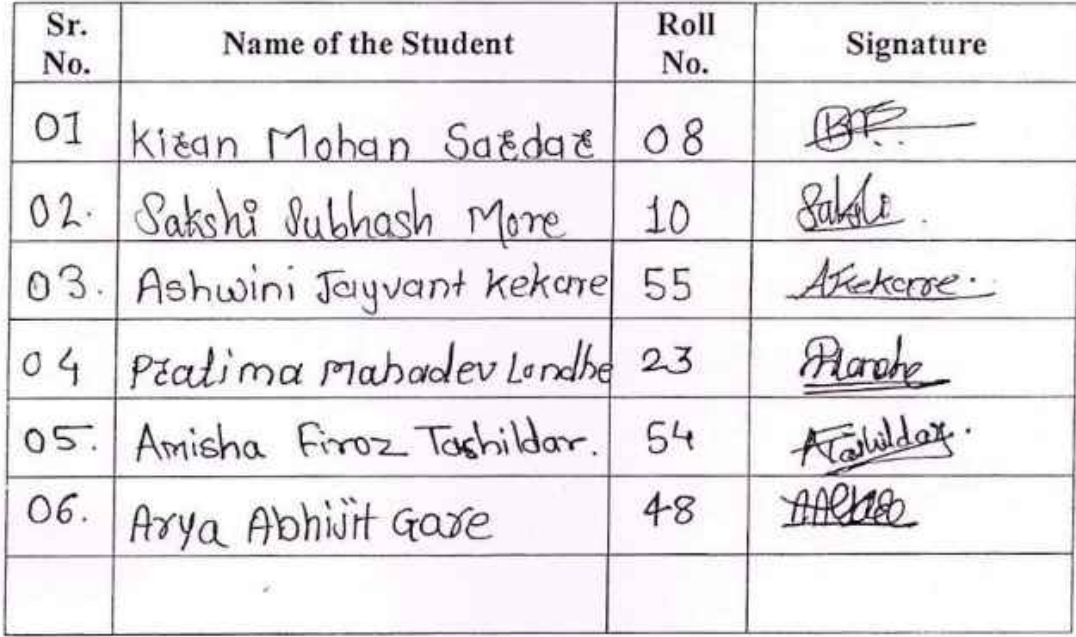 Sr. No. Name of the Student Roll No. Signature
01 Kiran Mohan Sardar 08
02. Sakshi Subhash More 10 Sakshi.
03. Ashwini Jayvant Kekare 55 AKekare.
04 Pratima Mahadev Londhe 23
05. Amisha Firoz Tashildar. 54 ATashildar.
06. Arya Abhijit Gare 48